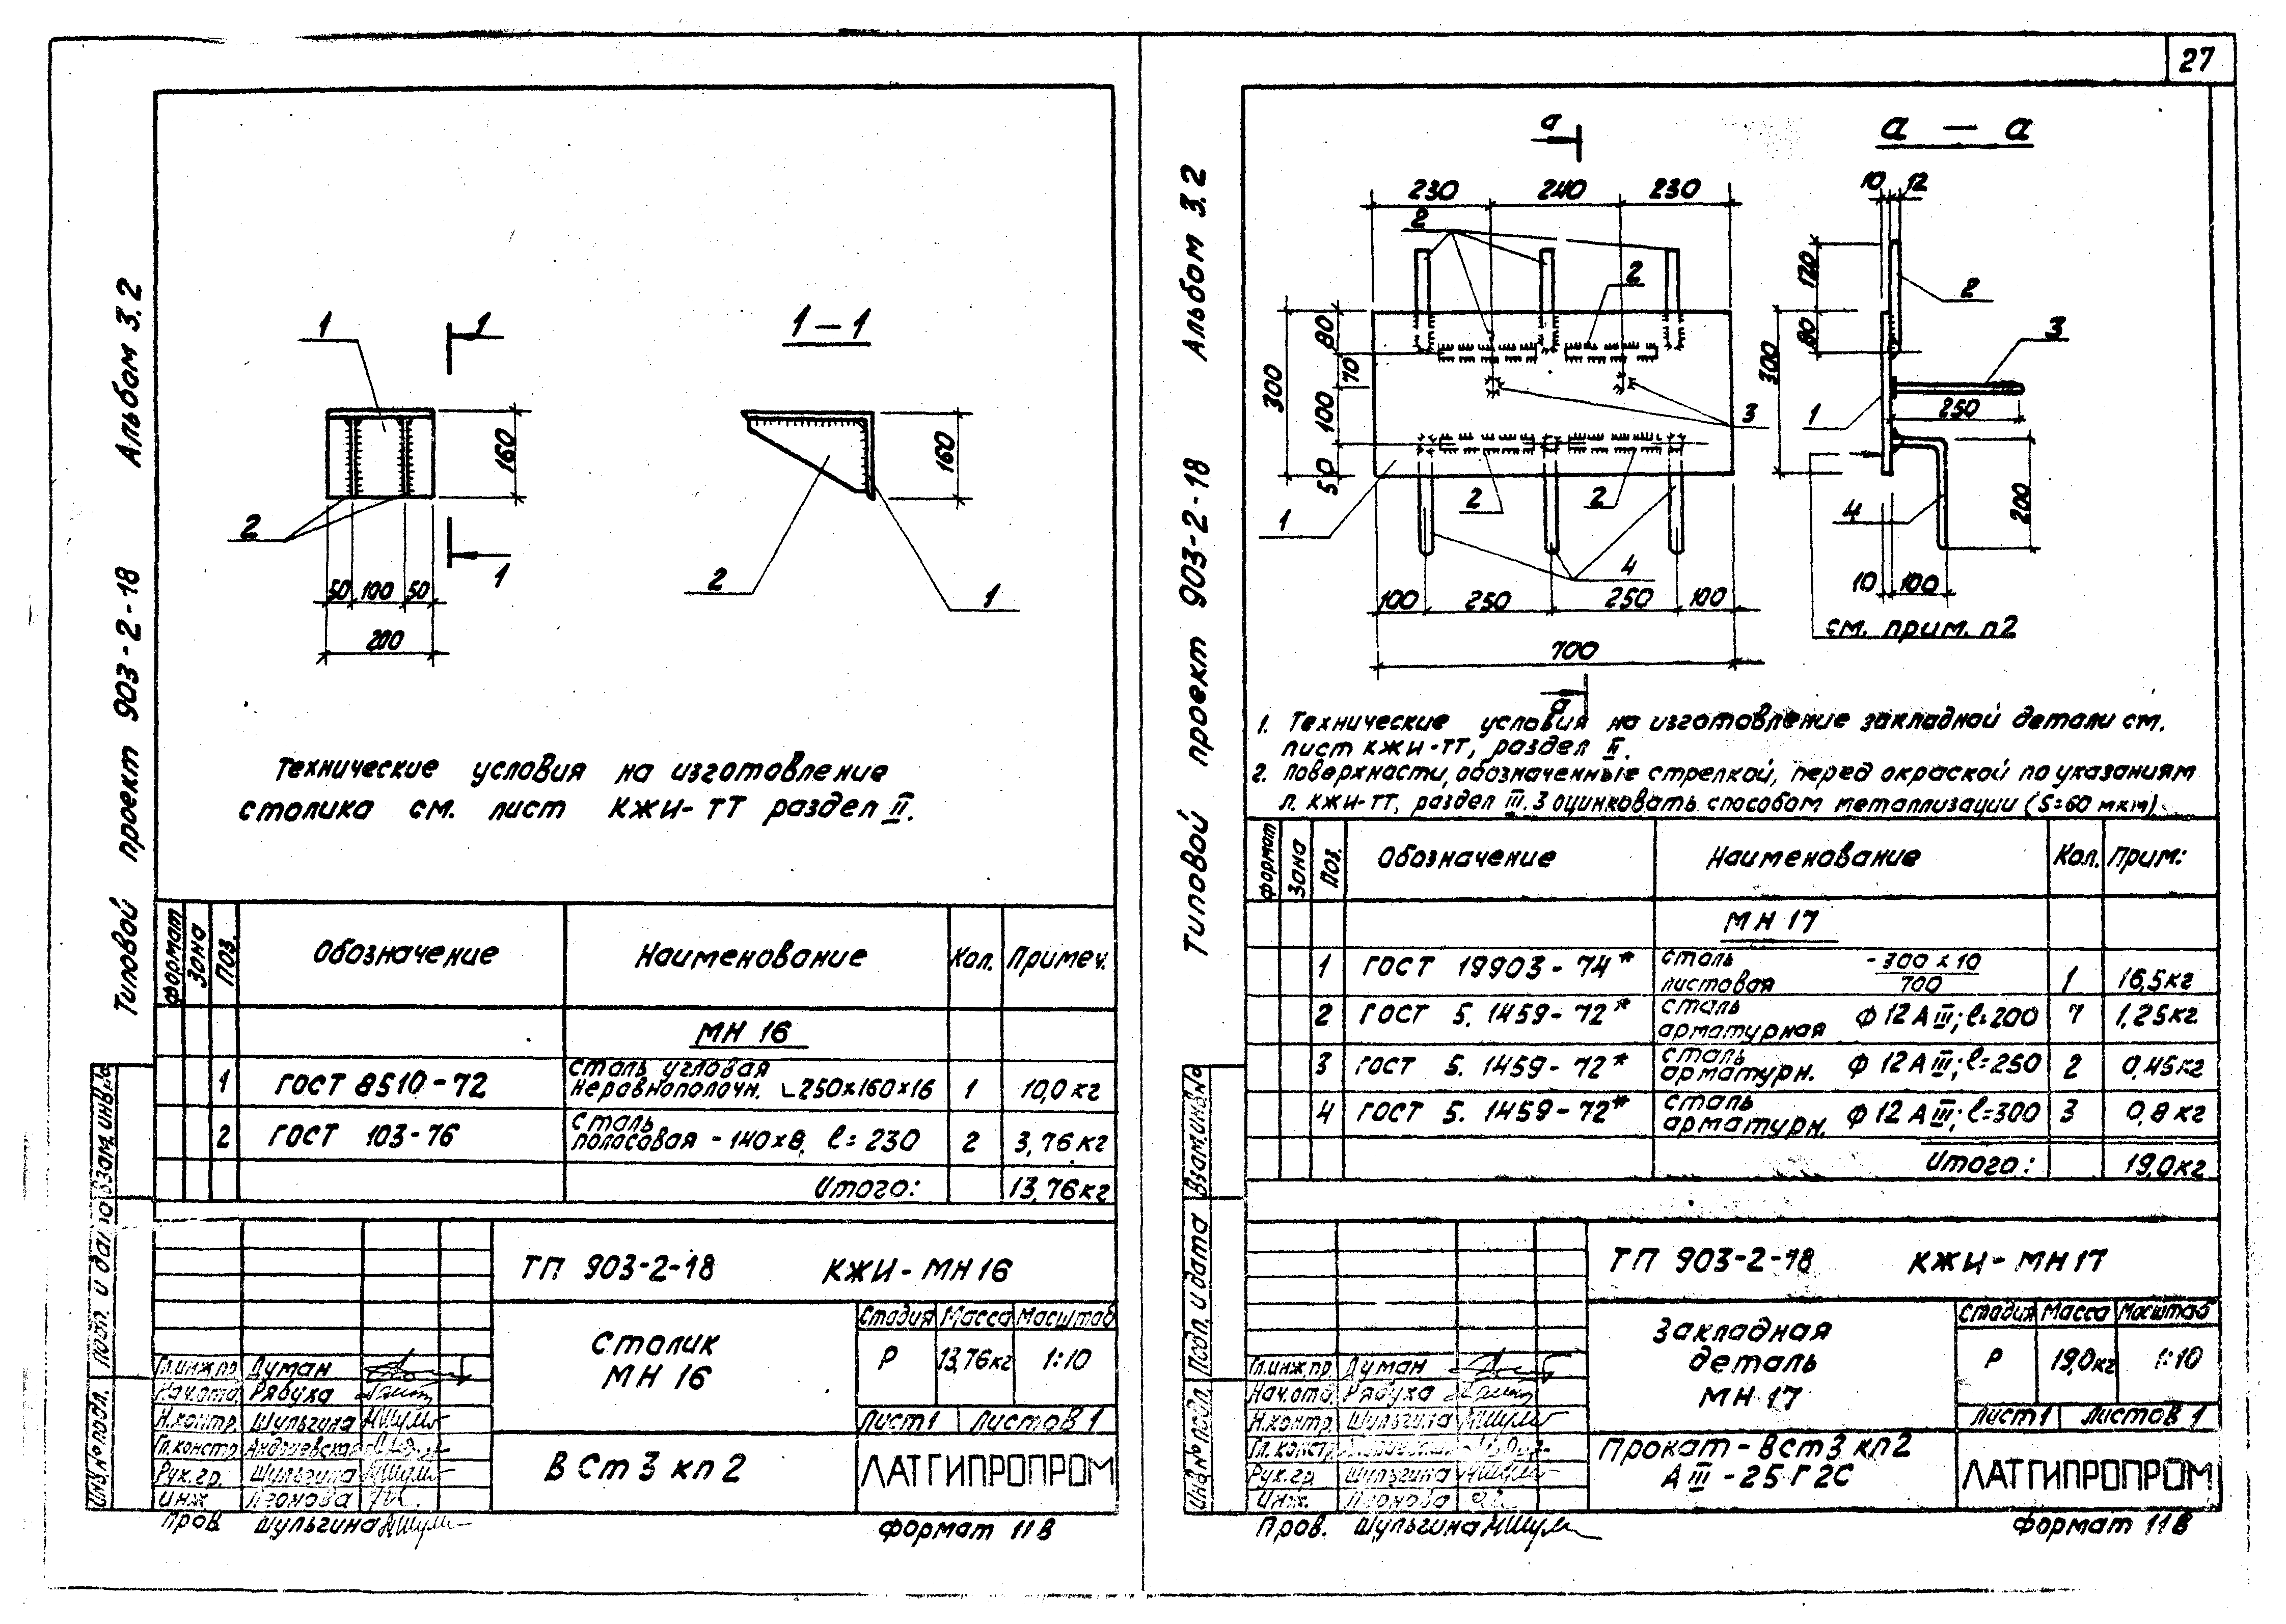 27
Типовой проект 903-2-18 Альбом 3.2
1
1
1-1
160
160
2
1
2
1
50 100 50
200
Технические условия на изготовление
столика см. лист КЖИ-ТТ раздел II.
Формат Зона Поз. Обозначение Наименование Кол. Примеч.
МН 16
1 ГОСТ 8510-72 сталь угловая неравнополочн. ∟250×160×16 1 10,0 кг
2 ГОСТ 103-76 сталь полосовая -140×8, l=230 2 3,76 кг
Итого: 13,76 кг
Взам. инв. №
Подп. и дата
Инв. № подл.
ТП 903-2-18 КЖИ-МН16
Столик
МН 16
Стадия Масса Масштаб
Р 13,76кг 1:10
Лист 1 Листов 1
ВСт3кп2
ЛАТГИПРОПРОМ
Гл.инж.пр. Думан
Нач.отд. Рябуха
Н.контр. Шульгина
Гл.констр. Андриевская
Рук.гр. Шульгина
Инж. Леонова
Пров. Шульгина
Формат 11В
Типовой проект 903-2-18 Альбом 3.2
а
а – а
230 240 230
10 12
2
2
120
2
80
80
3
70
300
300
100
1
250
3
50
2
2
1
4
200
4
100 250 250 100
10 100
700
см. прим. п2
а
1. Технические условия на изготовление закладной детали см.
лист КЖИ-ТТ, раздел II.
2. Поверхности, обозначенные стрелкой, перед окраской по указаниям
л. КЖИ-ТТ, раздел III.3 оцинковать способом металлизации (S=60 мкм).
Формат Зона Поз. Обозначение Наименование Кол. Прим:
МН 17
1 ГОСТ 19903-74* сталь листовая -300×10 700 1 16,5кг
2 ГОСТ 5.1459-72* сталь арматурная Ф12АIII; l=200 7 1,25кг
3 ГОСТ 5.1459-72* сталь арматурн. Ф12АIII; l=250 2 0,45кг
4 ГОСТ 5.1459-72* сталь арматурн. Ф12АIII; l=300 3 0,8кг
Итого: 19,0кг
Взам. инв. №
Подп. и дата
Инв. № подл.
ТП 903-2-18 КЖИ-МН17
Закладная
деталь
МН 17
Стадия Масса Масштаб
Р 19,0кг 1:10
Лист 1 Листов 1
Прокат-ВСт3кп2
АIII-25Г2С
ЛАТГИПРОПРОМ
Гл.инж.пр. Думан
Нач.отд. Рябуха
Н.контр. Шульгина
Гл.констр.
Рук.гр. Шульгина
Инж. Леонова
Пров. Шульгина
Формат 11В